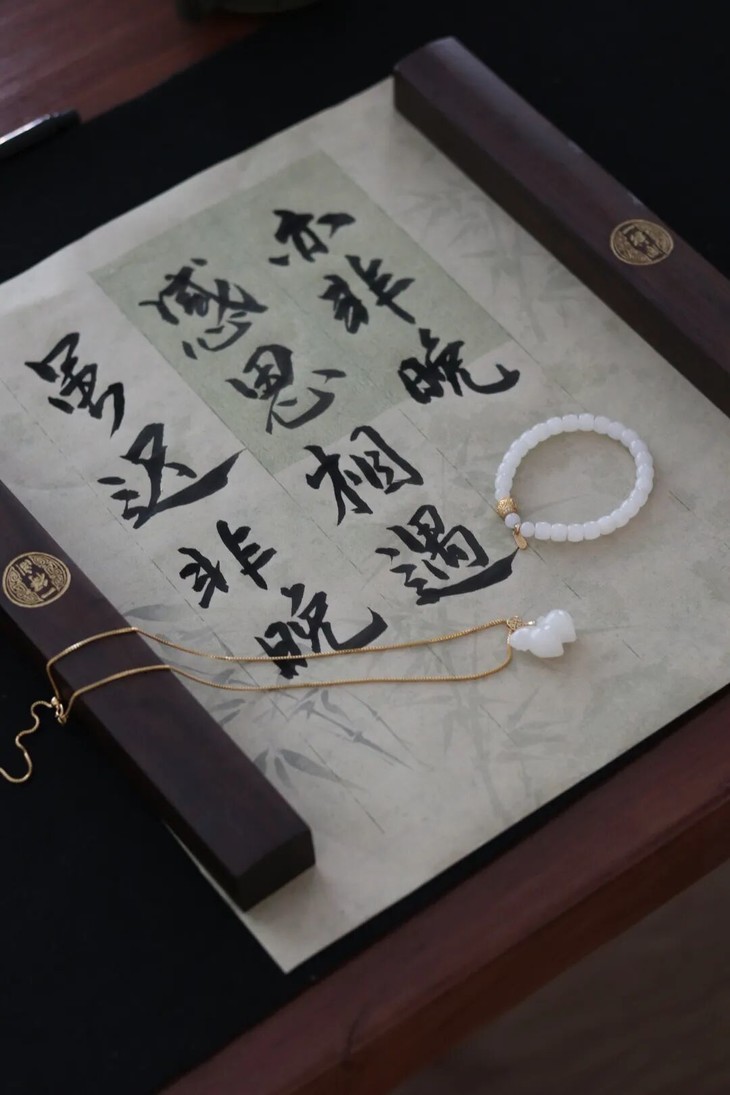 虽迟非晚
感恩相遇
亦非晚